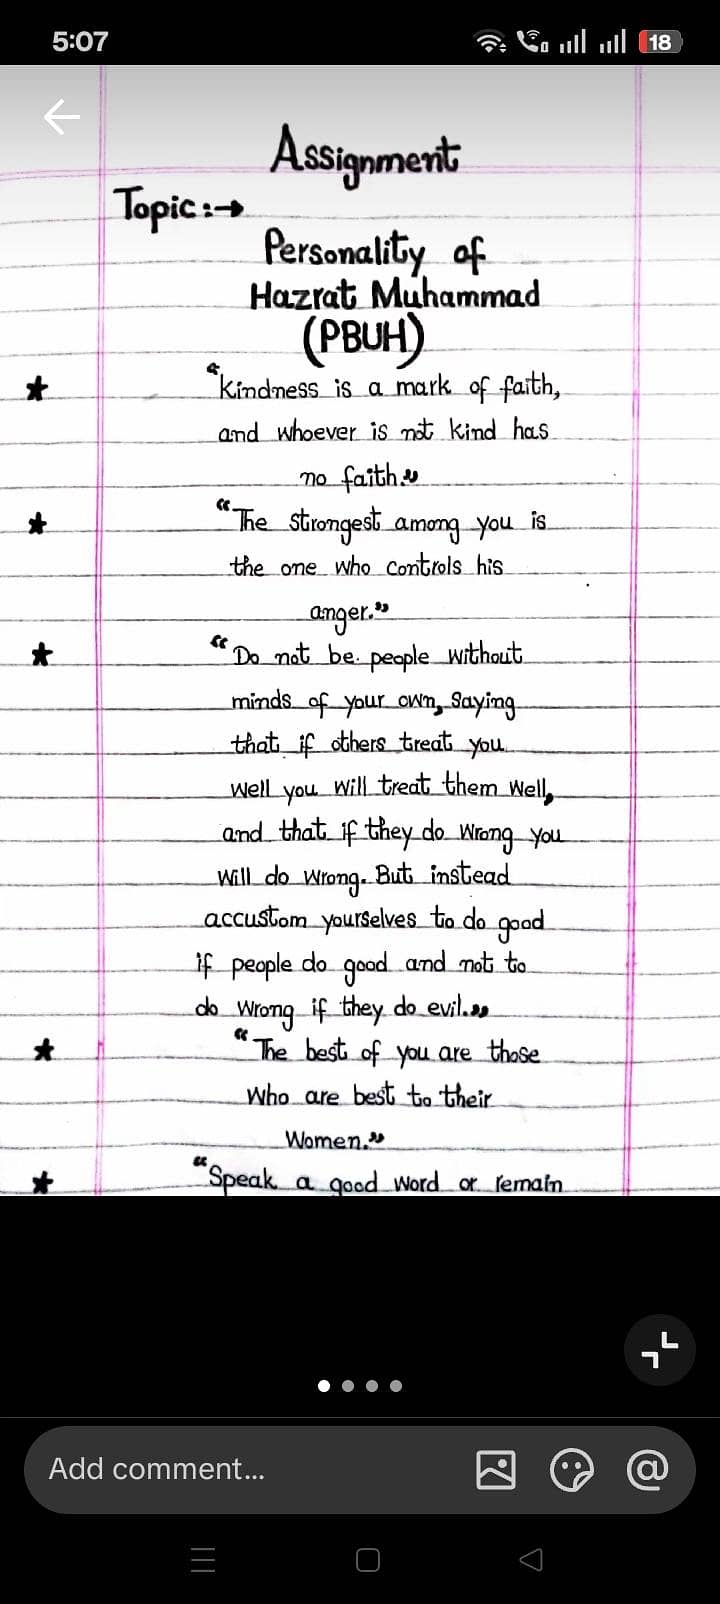 5:07
18
Assignment
Topic:→
Personality of
Hazrat Muhammad
(PBUH)
★ "Kindness is a mark of faith,
and whoever is not kind has
no faith."
★ "The strongest among you is
the one who controls his
anger."
★ "Do not be people without
minds of your own, saying
that if others treat you
well you will treat them well,
and that if they do wrong you
will do wrong. But instead
accustom yourselves to do good
if people do good and not to
do wrong if they do evil."
★ "The best of you are those
who are best to their
women."
★ "Speak a good word or remain
Add comment...